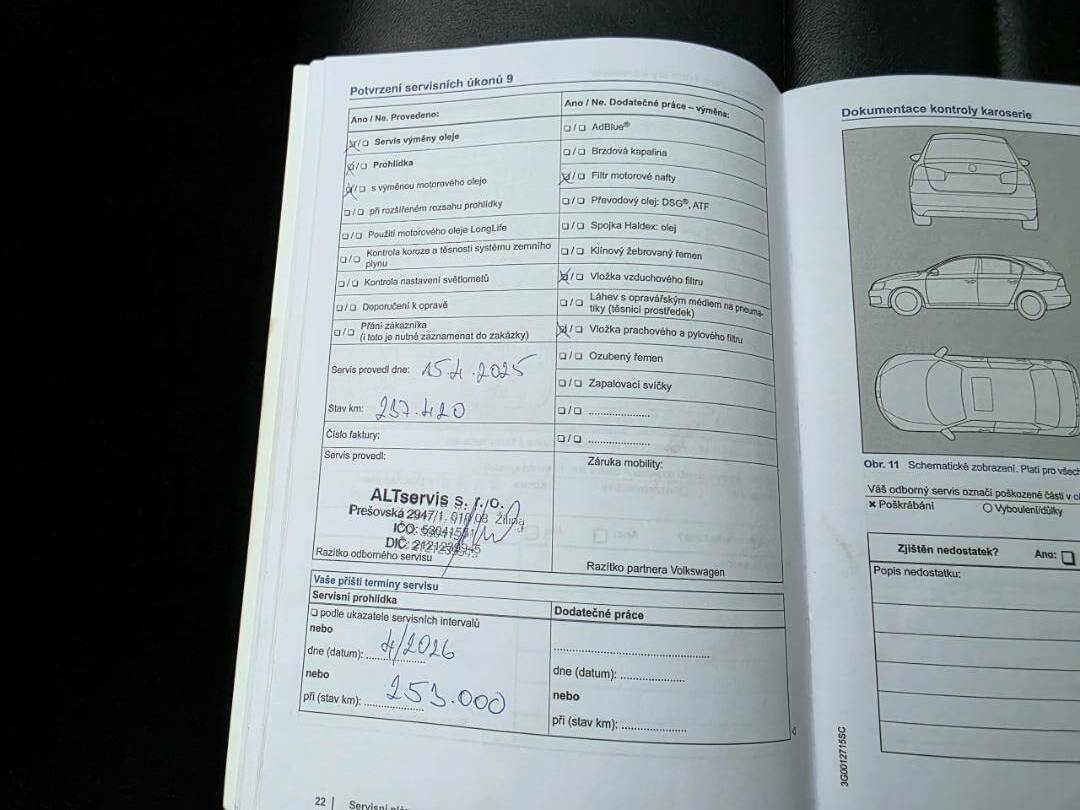 Potvrzení servisních úkonů 9
Ano / Ne. Provedeno:
☒/❑ Servis výměny oleje
☒/❑ Prohlídka
☒/❑ s výměnou motorového oleje
❑/❑ při rozšířeném rozsahu prohlídky
❑/❑ Použití motorového oleje LongLife
❑/❑ Kontrola koroze a těsnosti systému zemního
plynu
❑/❑ Kontrola nastavení světlometů
❑/❑ Doporučení k opravě
❑/❑ Přání zákazníka
(i toto je nutné zaznamenat do zakázky)
Servis provedl dne: 15.4.2025
Stav km: 237.420
Číslo faktury:
Servis provedl:
ALTservis s. r.o.
Prešovská 2947/1, 010 08 Žilina
IČO: 53041551
DIČ: 2121239945
Razítko odborného servisu
Ano / Ne. Dodatečné práce – výměna:
❑/❑ AdBlue®
❑/❑ Brzdová kapalina
☒/❑ Filtr motorové nafty
❑/❑ Převodový olej: DSG®, ATF
❑/❑ Spojka Haldex: olej
❑/❑ Klínový žebrovaný řemen
☒/❑ Vložka vzduchového filtru
❑/❑ Láhev s opravářským médiem na pneuma-
tiky (těsnicí prostředek)
☒/❑ Vložka prachového a pylového filtru
❑/❑ Ozubený řemen
❑/❑ Zapalovací svíčky
❑/❑ .....................
❑/❑ .....................
Záruka mobility:
Razítko partnera Volkswagen
Vaše příští termíny servisu
Servisní prohlídka
❑ podle ukazatele servisních intervalů
nebo
dne (datum): 4/2026
nebo
při (stav km): 253.000
Dodatečné práce
.....................................................
dne (datum): ......................
nebo
při (stav km): ......................
22 | Servisní
Dokumentace kontroly karoserie
Obr. 11 Schematické zobrazení. Platí pro
Váš odborný servis označí poškozené části v
✖ Poškrábání ○ Vyboulení/důlky
Zjištěn nedostatek? Ano: ❑
Popis nedostatku:
3G0012715SC